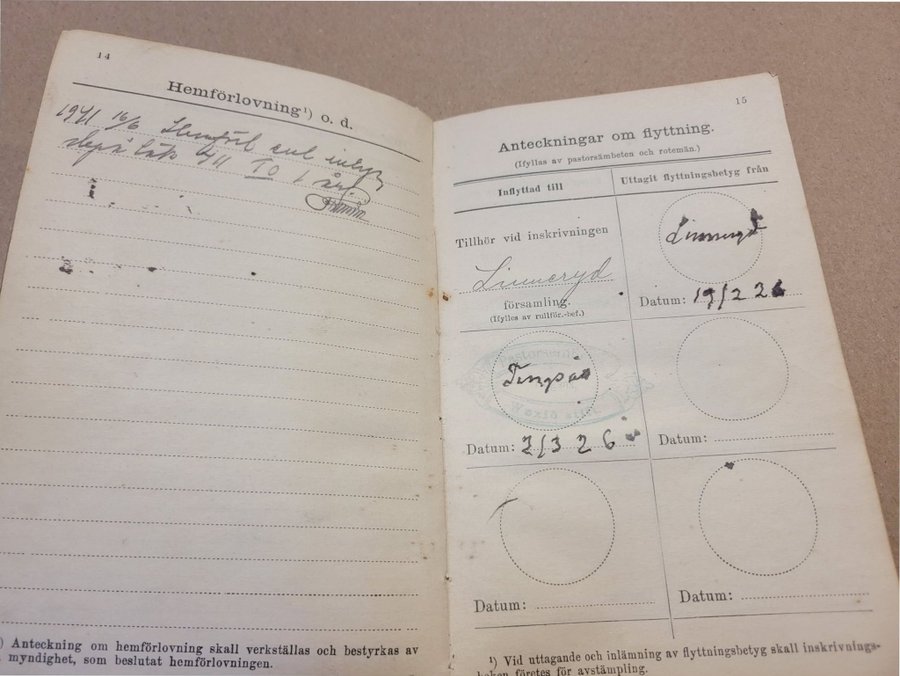 14
Hemförlovning¹) o. d.
1941 16/6
1 år.
) Anteckning om hemförlovning skall verkställas och bestyrkas av
myndighet, som beslutat hemförlovningen.
15
Anteckningar om flyttning.
(Ifyllas av pastorsämbeten och rotemän.)
Inflyttad till
Uttagit flyttningsbetyg från
Tillhör vid inskrivningen
Linneryd
församling.
(Ifylles av rullför.-bef.)
Linneryd
Datum: 19/2 26
Växiö stift.
Datum: 7/3 26
Datum:
Datum:
Datum:
¹) Vid uttagande och inlämning av flyttningsbetyg skall inskrivnings-
boken företes för avstämpling.